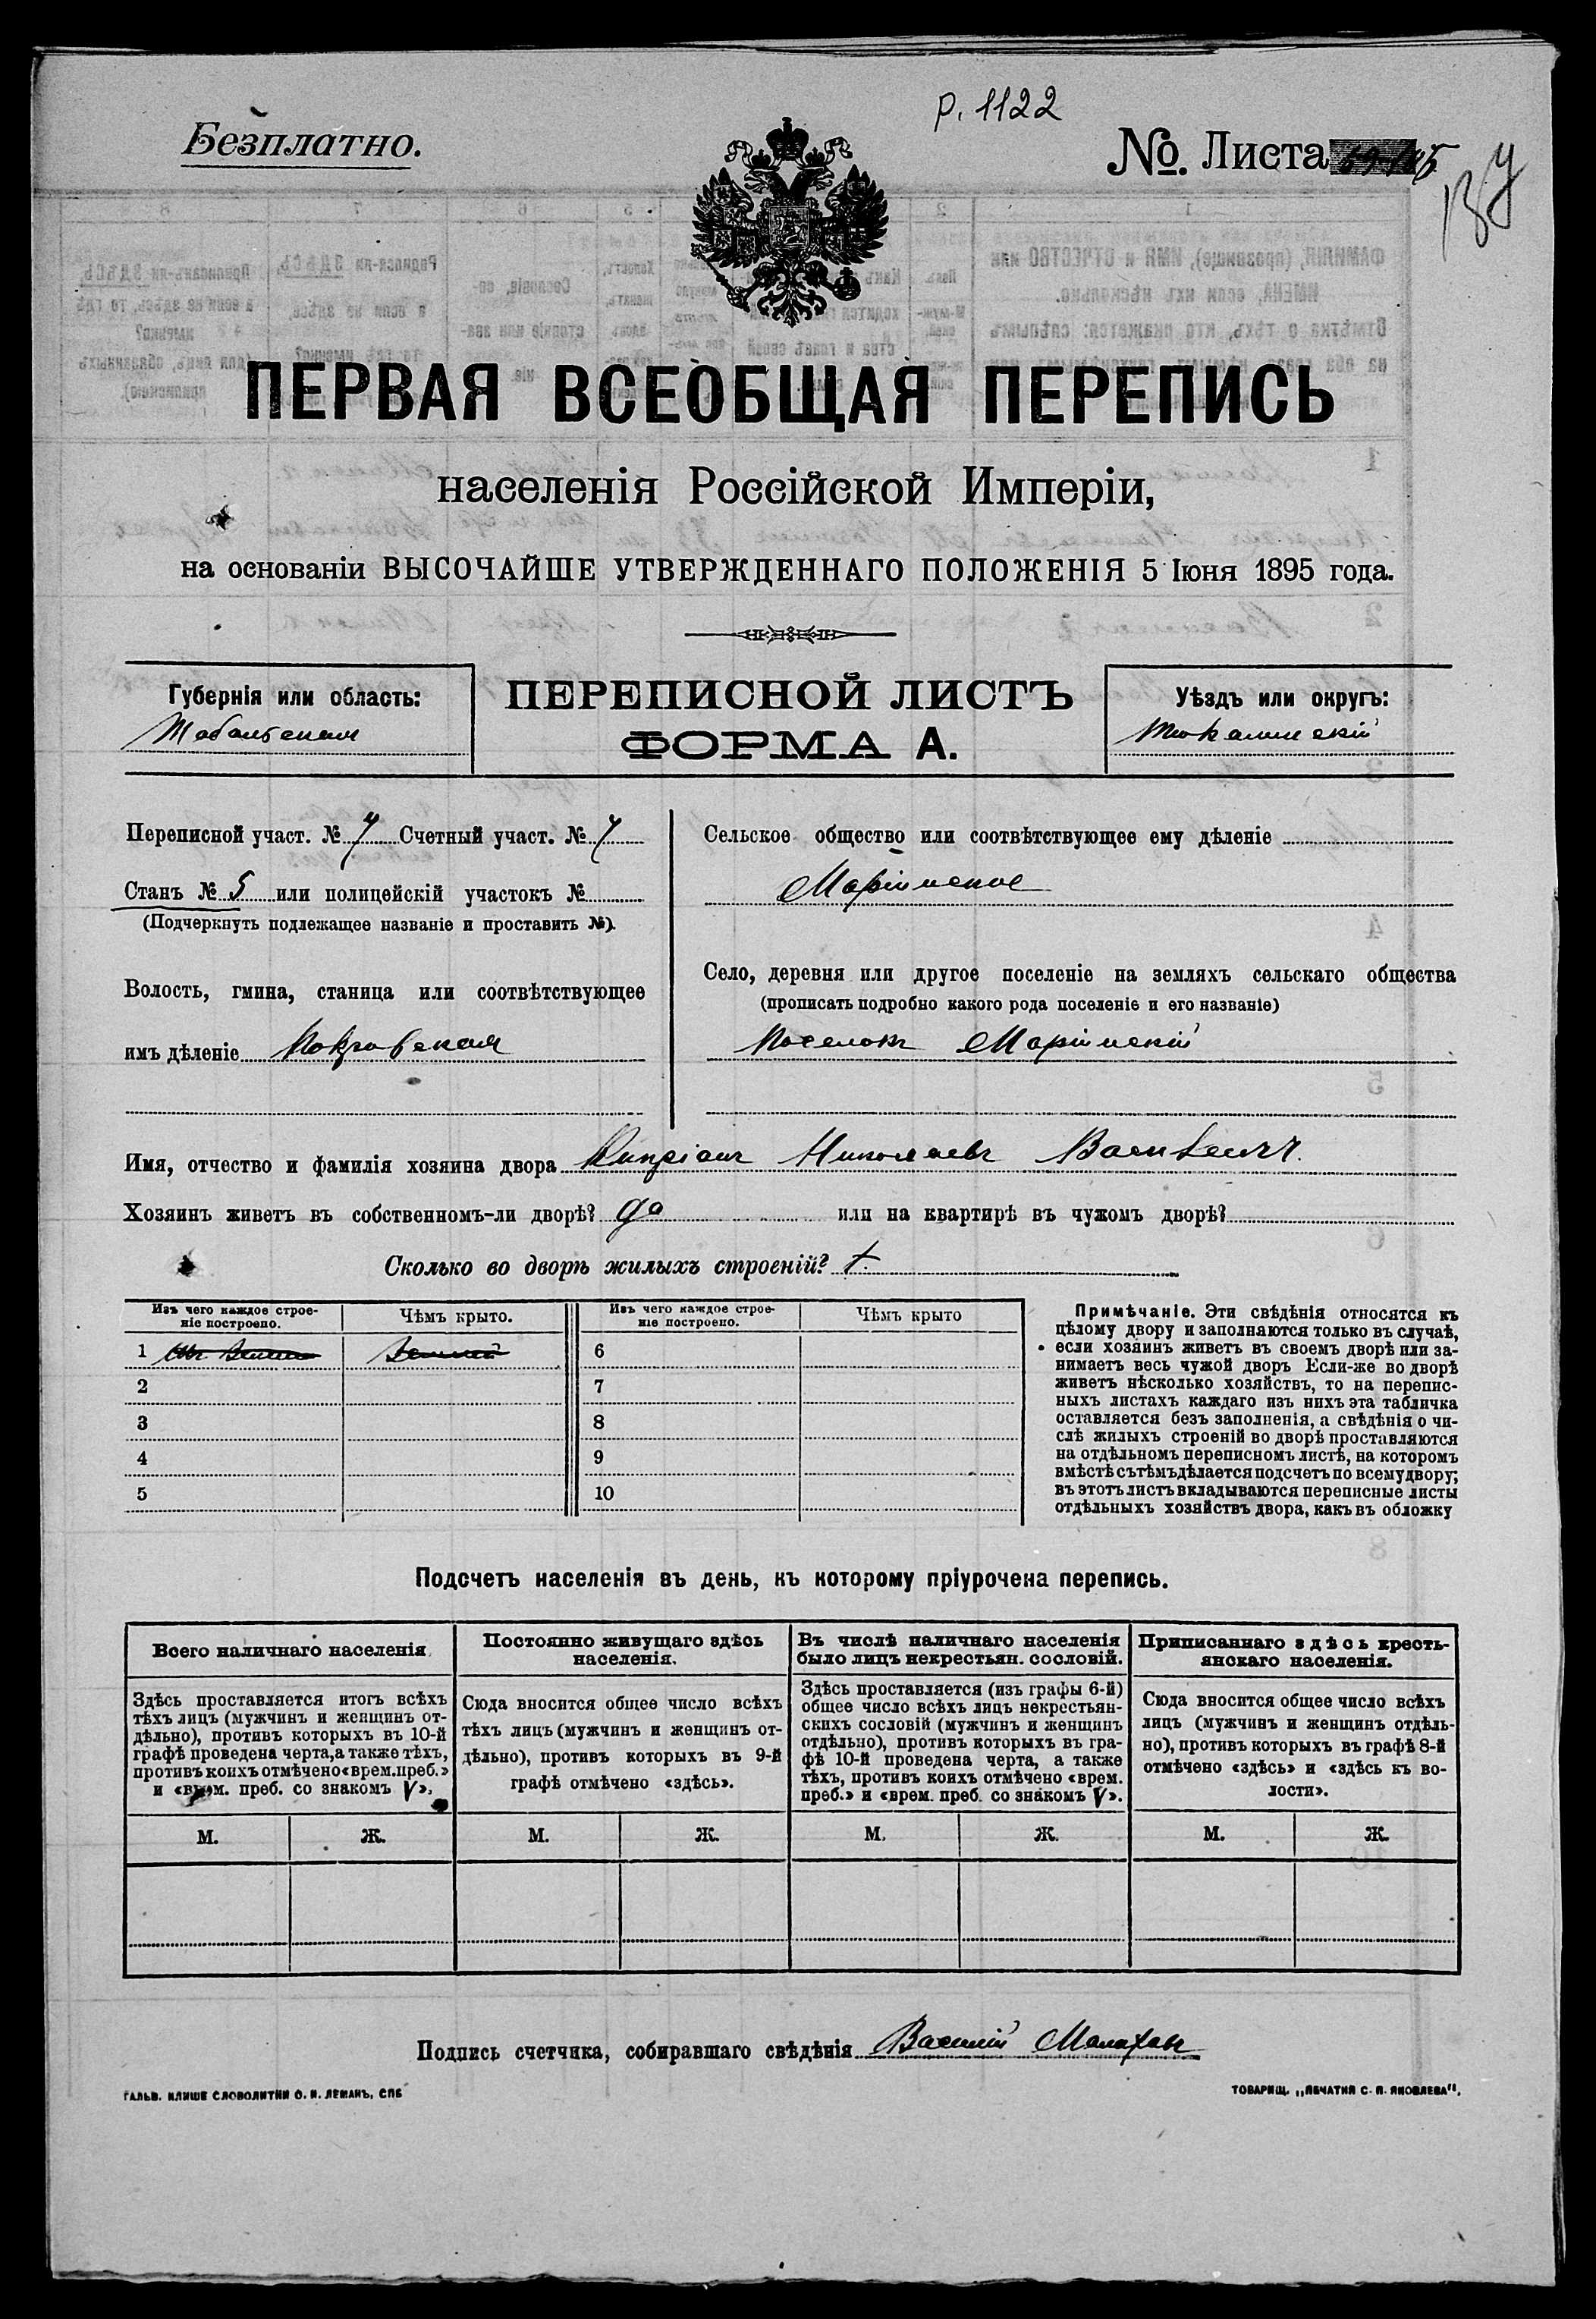 р. 1122
Безплатно.
№. Листа
ПЕРВАЯ ВСЕОБЩАЯ ПЕРЕПИСЬ
населенія Россійской Имперіи,
на основаніи ВЫСОЧАЙШЕ УТВЕРЖДЕННАГО ПОЛОЖЕНІЯ 5 Іюня 1895 года.
Губернія или область:
Тобольская
ПЕРЕПИСНОЙ ЛИСТЪ
ФОРМА А.
Уѣздъ или округъ:
Тюкалинскій
Переписной участ. № 7 Счетный участ. № 7
Станъ № 5 или полицейскій участокъ №
(Подчеркнуть подлежащее названіе и проставить №).
Волость, гмина, станица или соотвѣтствующее
имъ дѣленіе Покровская
Сельское общество или соотвѣтствующее ему дѣленіе
Маріинское
Село, деревня или другое поселеніе на земляхъ сельскаго общества
(прописать подробно какого рода поселеніе и его названіе)
Поселокъ Маріинскій
Имя, отчество и фамилія хозяина двора Кипріанъ Николаевъ
Хозяинъ живетъ въ собственномъ-ли дворѣ? да или на квартирѣ въ чужомъ дворѣ?
Сколько во дворѣ жилыхъ строеній? 1.
Изъ чего каждое строе-
ніе построено.
Чѣмъ крыто.
Изъ чего каждое строе-
ніе построено.
Чѣмъ крыто
1
2
3
4
5
6
7
8
9
10
Примѣчаніе. Эти свѣдѣнія относятся къ
цѣлому двору и заполняются только въ случаѣ,
если хозяинъ живетъ въ своемъ дворѣ или за-
нимаетъ весь чужой дворъ Если-же во дворѣ
живетъ нѣсколько хозяйствъ, то на перепис-
ныхъ листахъ каждаго изъ нихъ эта табличка
оставляется безъ заполненія, а свѣдѣнія о чи-
слѣ жилыхъ строеній во дворѣ проставляются
на отдѣльномъ переписномъ листѣ, на которомъ
вмѣстѣ съ тѣмъ дѣлается подсчетъ по всему двору;
въ этотъ листъ вкладываются переписные листы
отдѣльныхъ хозяйствъ двора, какъ въ обложку
Подсчетъ населенія въ день, къ которому пріурочена перепись.
Всего наличнаго населенія
Здѣсь проставляется итогъ всѣхъ
тѣхъ лицъ (мужчинъ и женщинъ от-
дѣльно), противъ которыхъ въ 10-й
графѣ проведена черта, а также тѣхъ,
противъ коихъ отмѣчено «врем. преб.»
и «врем. преб. со знакомъ V».
Постоянно живущаго здѣсь
населенія.
Сюда вносится общее число всѣхъ
тѣхъ лицъ (мужчинъ и женщинъ от-
дѣльно), противъ которыхъ въ 9-й
графѣ отмѣчено «здѣсь».
Въ числѣ наличнаго населенія
было лицъ некрестьян. сословій.
Здѣсь проставляется (изъ графы 6-й)
общее число всѣхъ лицъ некрестьян-
скихъ сословій (мужчинъ и женщинъ
отдѣльно), противъ которыхъ въ гра-
фѣ 10-й проведена черта, а также
тѣхъ, противъ коихъ отмѣчено «врем.
преб.» и «врем. преб. со знакомъ V».
Приписаннаго здѣсь кресть-
янскаго населенія.
Сюда вносится общее число всѣхъ
лицъ (мужчинъ и женщинъ отдѣль-
но), противъ которыхъ въ графѣ 8-й
отмѣчено «здѣсь» и «здѣсь къ во-
лости».
М. Ж. М. Ж. М. Ж. М. Ж.
Подпись счетчика, собиравшаго свѣдѣнія Василій Малаховъ
ГАЛЬВ. КЛИШЕ СЛОВОЛИТНИ О. И. ЛЕМАНЪ, СПБ
ТОВАРИЩ. „ПЕЧАТНЯ С. П. ЯКОВЛЕВА".